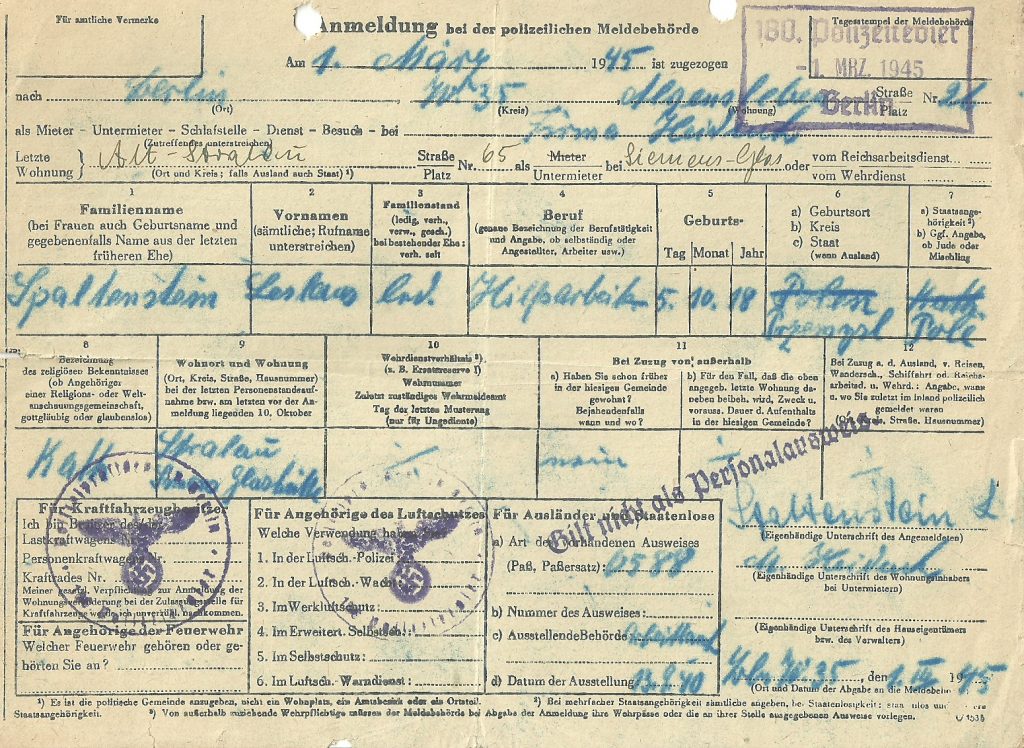 Für amtliche Vermerke
Anmeldung bei der polizeilichen Meldebehörde
Tagesstempel der Meldebehörde
180. Polizeirevier
-1. MRZ. 1945
Berlin
Am 1. März 1945 ist zugezogen
nach Berlin W. 35 Straße Platz Nr. 21
(Ort) (Kreis) (Wohnung)
als Mieter – Untermieter – Schlafstelle – Dienst – Besuch – bei Firma
(Zutreffendes unterstreichen)
Letzte Wohnung } Alt-Stralau Straße Platz Nr. 65 als Mieter Untermieter bei Siemens-Glas oder vom Reichsarbeitsdienst vom Wehrdienst
(Ort und Kreis; falls Ausland auch Staat) ¹)
1
Familienname
(bei Frauen auch Geburtsname und
gegebenenfalls Name aus der letzten
früheren Ehe)
2
Vornamen
(sämtliche; Rufname
unterstreichen)
3
Familienstand
(ledig, verh.,
verw., gesch.)
bei bestehender Ehe:
verh. seit
4
Beruf
(genaue Bezeichnung der Berufstätigkeit
und Angabe, ob selbständig oder
Angestellter, Arbeiter usw.)
5
Geburts-
Tag Monat Jahr
6
a) Geburtsort
b) Kreis
c) Staat
(wenn Ausland)
7
a) Staatsange-
hörigkeit ²)
b) Ggf. Angabe,
ob Jude oder
Mischling
Spaltenstein led. Hilfsarbeiter 5. 10. 18 Polen
Przemysl Pole
8
Bezeichnung
des religiösen Bekenntnisses
(ob Angehöriger
einer Religions- oder Welt-
anschauungsgemeinschaft,
gottgläubig oder glaubenslos)
9
Wohnort und Wohnung
(Ort, Kreis, Straße, Hausnummer)
bei der letzten Personenstandsauf-
nahme bzw. am letzten vor der An-
meldung liegenden 10. Oktober
10
Wehrdienstverhältnis ³).
(z. B. Ersatzreserve I)
Wehrnummer
Zuletzt zuständiges Wehrmeldeamt
Tag der letzten Musterung
(nur für Ungediente)
11
Bei Zuzug von außerhalb
a) Haben Sie schon früher
in der hiesigen Gemeinde
gewohnt?
Bejahendenfalls
wann und wo?
b) Für den Fall, daß die oben
angegeb. letzte Wohnung da-
neben beibeh. wird, Zweck u.
vorauss. Dauer d. Aufenthalts
in der hiesigen Gemeinde?
12
Bei Zuzug a. d. Ausland, v. Reisen,
Wandersch., Schiffahrt od. Reichs-
arbeitsd. u. Wehrd.: Angabe, wann
u. wo Sie zuletzt im Inland polizeilich
gemeldet waren
(Ort, Kreis, Straße, Hausnummer)
Kath Stralau nein
Glashütte
Gilt nicht als Personalausweis
Für Kraftfahrzeugbesitzer
Ich bin Besitzer des/der
Lastkraftwagens Nr.
Personenkraftwagens Nr.
Kraftrades Nr.
Meiner gesetzl. Verpflichtung zur Anmeldung der
Wohnungsveränderung bei der Zulassungsstelle für
Kraftfahrzeuge werde ich unverzügl. nachkommen.
Für Angehörige der Feuerwehr
Welcher Feuerwehr gehören oder ge-
hörten Sie an?
Für Angehörige des Luftschutzes
Welche Verwendung haben
1. In der Luftsch.-Polizei
2. In der Luftsch.-Wacht
3. Im Werkluftschutz:
4. Im Erweitert. Selbstsch.:
5. Im Selbstschutz:
6. Im Luftsch.-Warndienst:
Für Ausländer und Staatenlose
a) Art des vorhandenen Ausweises
(Paß, Paßersatz): 0588
b) Nummer des Ausweises:
c) Ausstellende Behörde:
d) Datum der Ausstellung
Spaltenstein L.
(Eigenhändige Unterschrift des Anmeldenden)
(Eigenhändige Unterschrift des Wohnungsinhabers
bei Untermietern)
(Eigenhändige Unterschrift des Hauseigentümers
bzw. des Verwalters)
W. 35, den 1. III 1945
(Ort und Datum der Abgabe an die Meldebehörde)
¹) Es ist die politische Gemeinde anzugeben, nicht ein Wohnplatz, ein Amtsbezirk oder ein Ortsteil. ²) Bei mehrfacher Staatsangehörigkeit sämtliche angeben, bei Staatenlosigkeit: staatenlos und
Staatsangehörigkeit. ³) Von außerhalb zuziehende Wehrpflichtige müssen der Meldebehörde bei Abgabe der Anmeldung ihre Wehrpässe oder die an ihrer Stelle ausgegebenen Ausweise vorlegen.